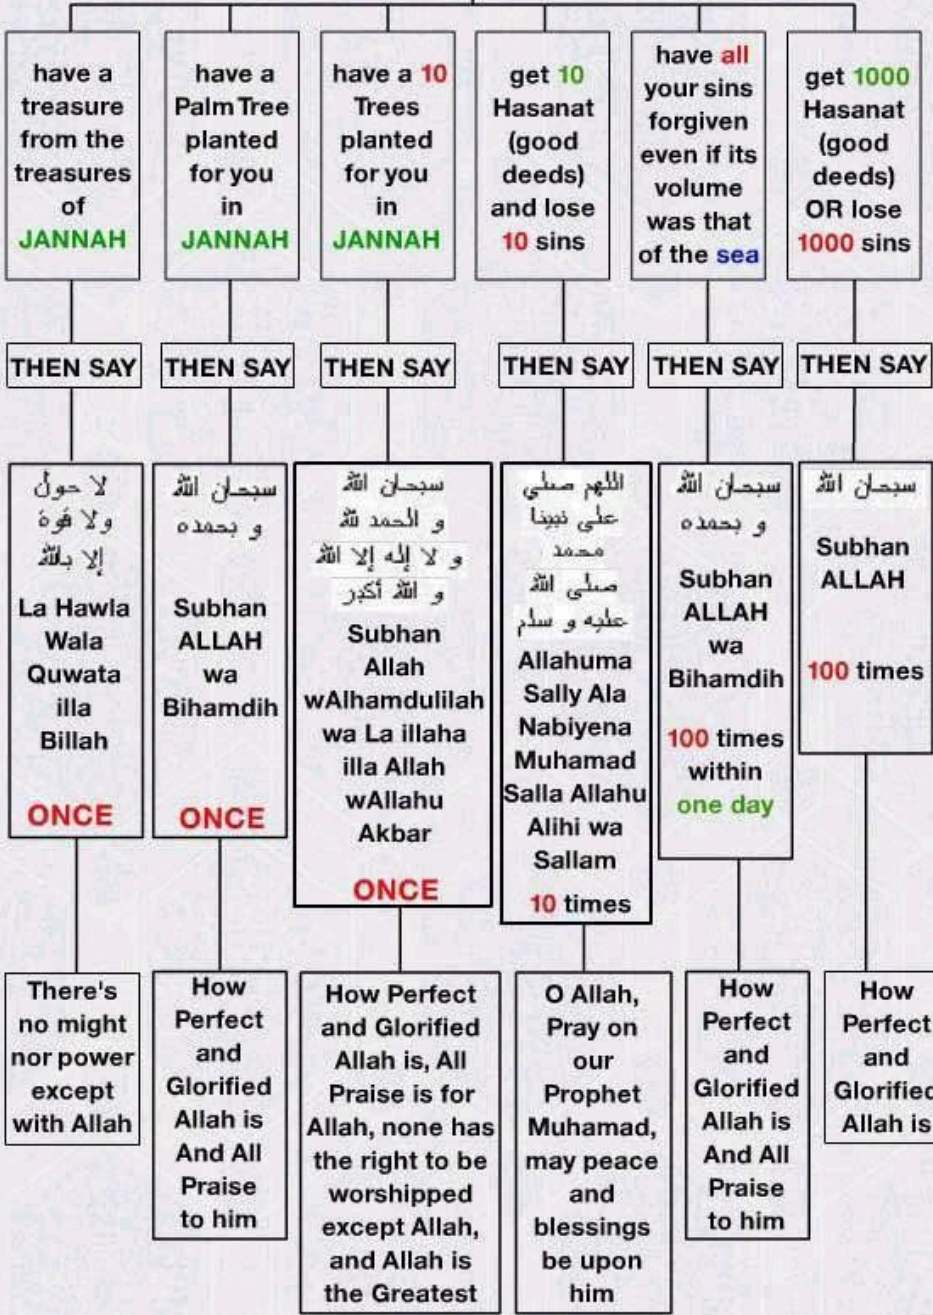 have a
treasure
from the
treasures
of
JANNAH
have a
Palm Tree
planted
for you
in
JANNAH
have a 10
Trees
planted
for you
in
JANNAH
get 10
Hasanat
(good
deeds)
and lose
10 sins
have all
your sins
forgiven
even if its
volume
was that
of the sea
get 1000
Hasanat
(good
deeds)
OR lose
1000 sins
THEN SAY
THEN SAY
THEN SAY
THEN SAY
THEN SAY
THEN SAY
لا حولَ
ولا قوةَ
إلا بالله
La Hawla
Wala
Quwata
illa
Billah
ONCE
سبحان الله
و بحمده
Subhan
ALLAH
wa
Bihamdih
ONCE
سبحان الله
و الحمد لله
و لا إله إلا الله
و الله أكبر
Subhan
Allah
wAlhamdulilah
wa La illaha
illa Allah
wAllahu
Akbar
ONCE
اللهم صلي
على نبينا
محمد
صلى الله
عليه و سلم
Allahuma
Sally Ala
Nabiyena
Muhamad
Salla Allahu
Alihi wa
Sallam
10 times
سبحان الله
و بحمده
Subhan
ALLAH
wa
Bihamdih
100 times
within
one day
سبحان الله
Subhan
ALLAH
100 times
There's
no might
nor power
except
with Allah
How
Perfect
and
Glorified
Allah is
And All
Praise
to him
How Perfect
and Glorified
Allah is, All
Praise is for
Allah, none has
the right to be
worshipped
except Allah,
and Allah is
the Greatest
O Allah,
Pray on
our
Prophet
Muhamad,
may peace
and
blessings
be upon
him
How
Perfect
and
Glorified
Allah is
And All
Praise
to him
How
Perfect
and
Glorified
Allah is